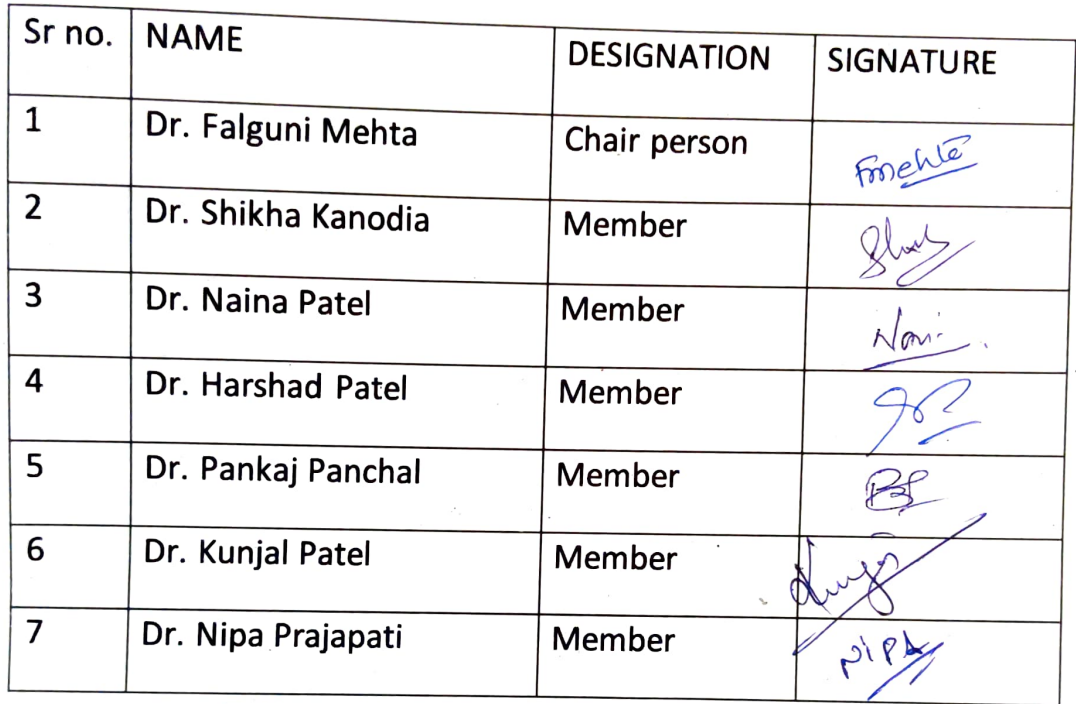 Sr no. NAME DESIGNATION SIGNATURE
1 Dr. Falguni Mehta Chair person Fmehta
2 Dr. Shikha Kanodia Member
3 Dr. Naina Patel Member
4 Dr. Harshad Patel Member
5 Dr. Pankaj Panchal Member
6 Dr. Kunjal Patel Member
7 Dr. Nipa Prajapati Member NIPA